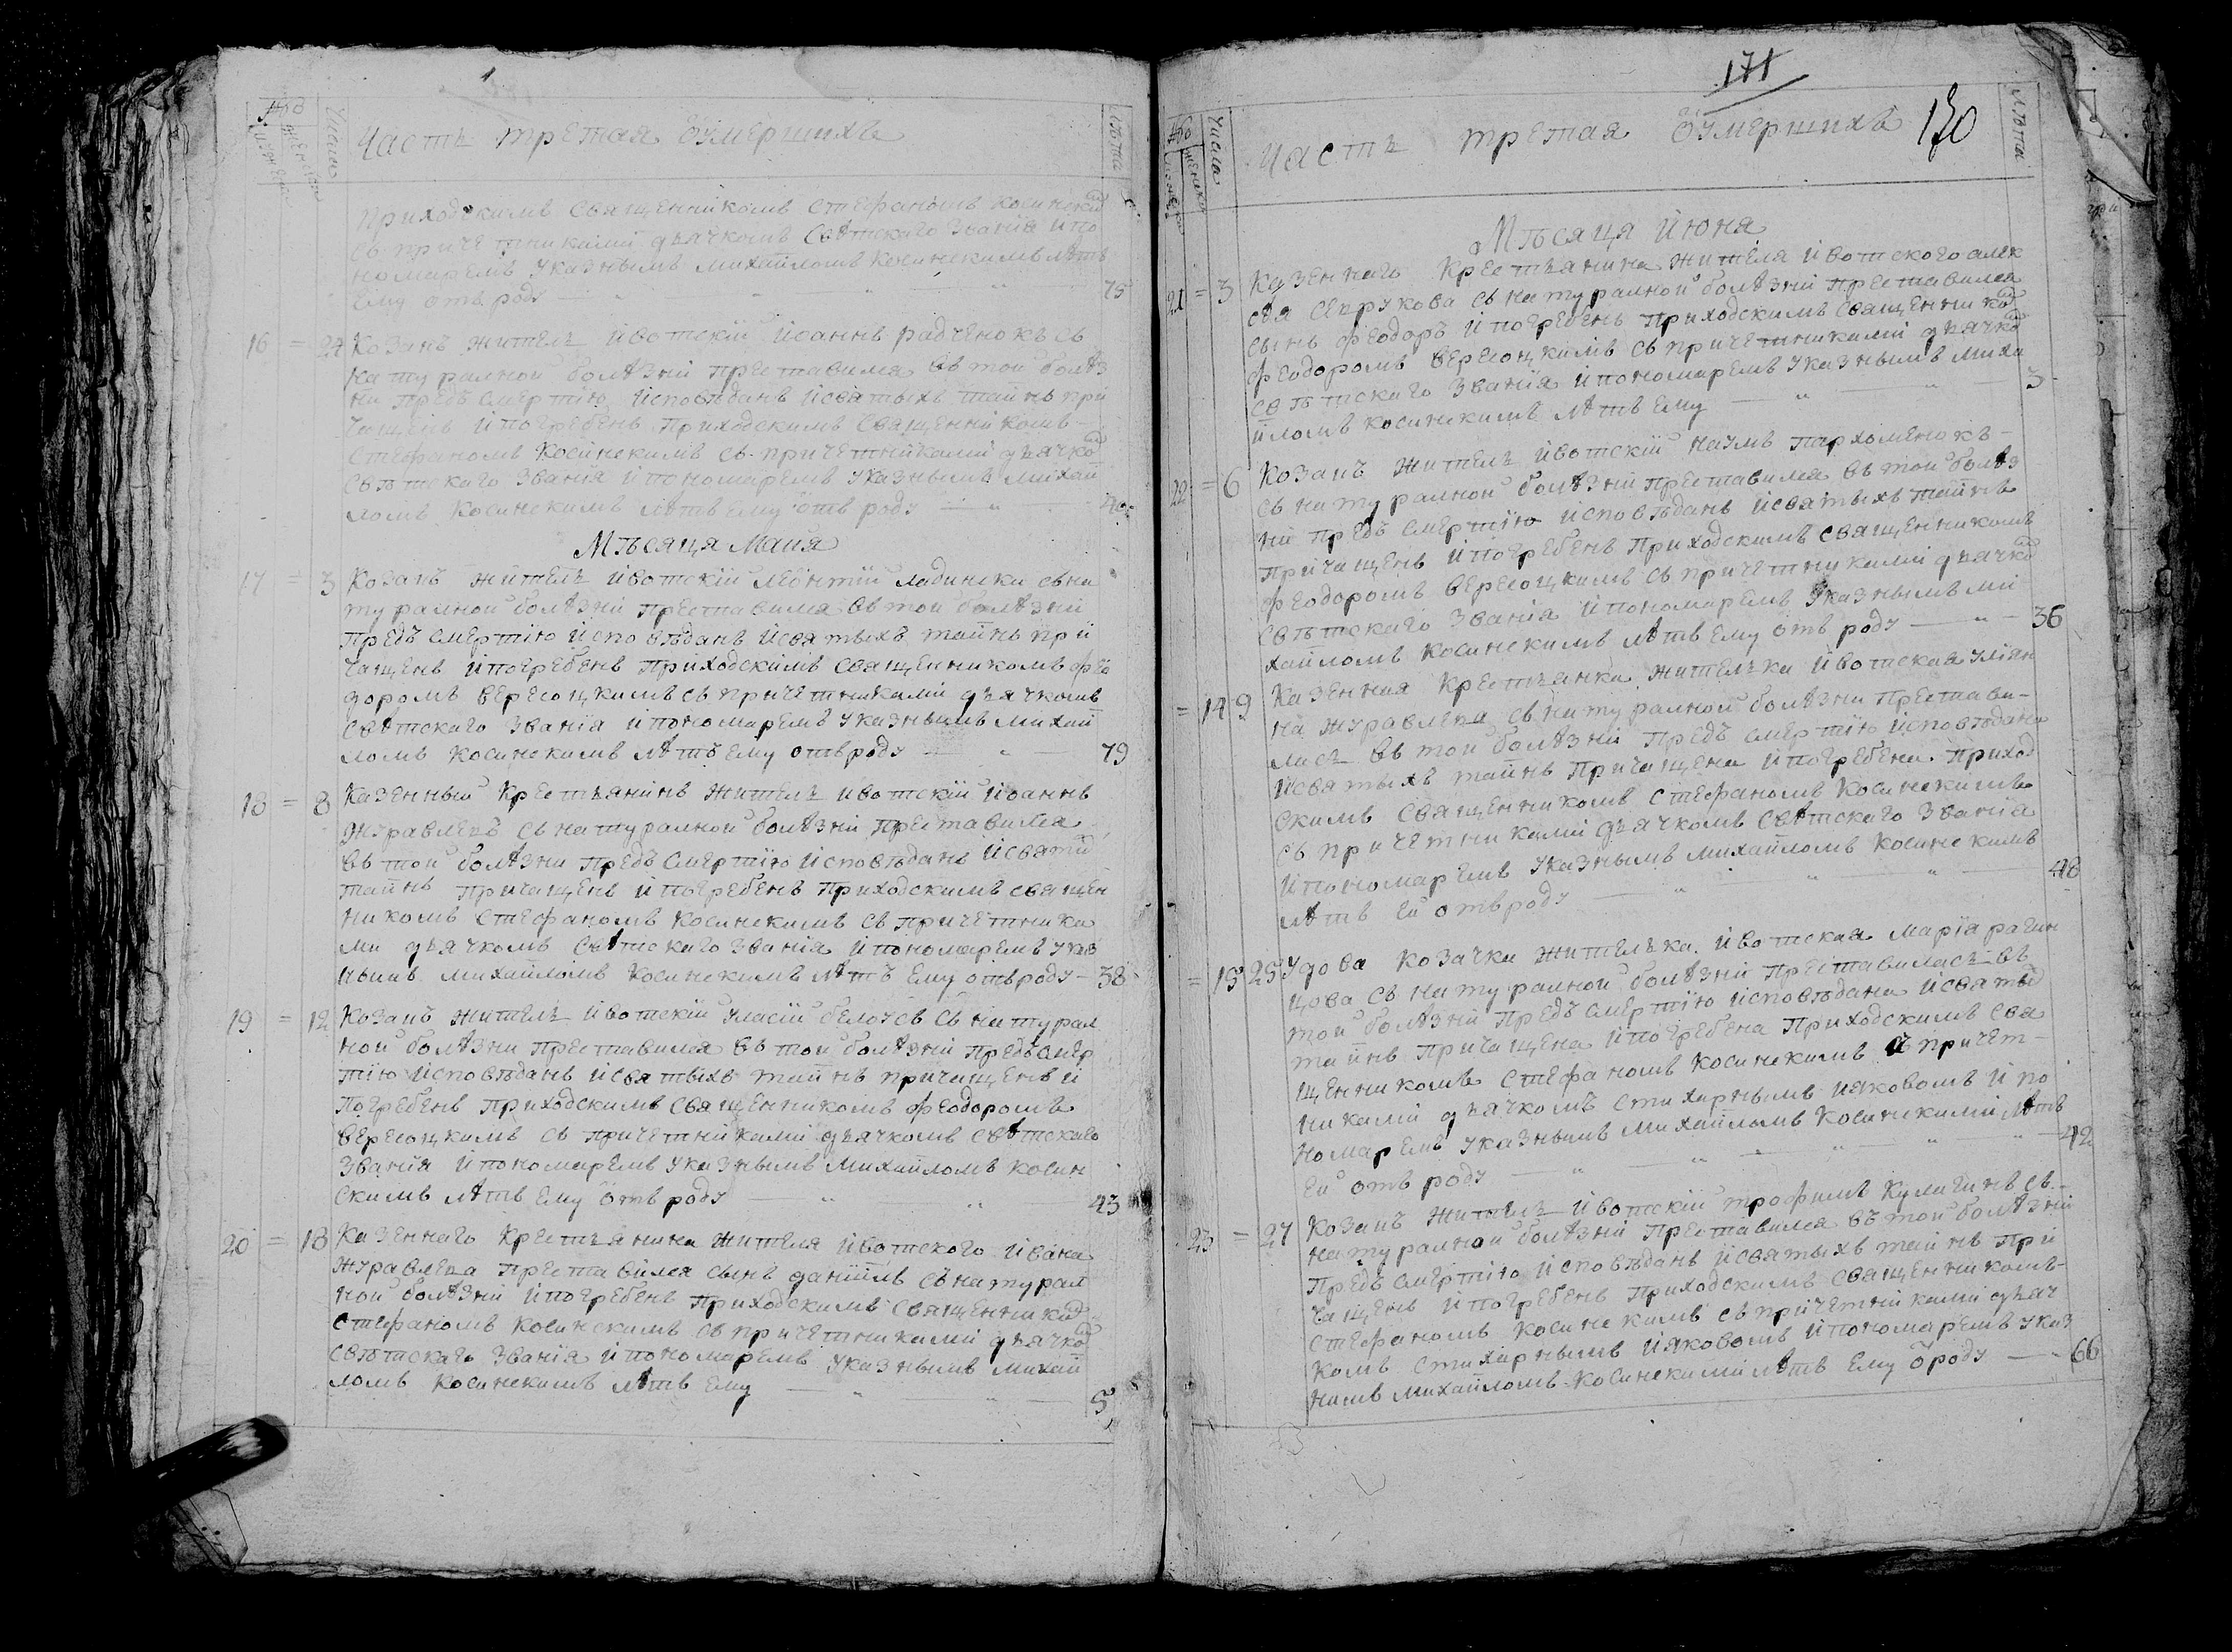 Число
Часть третая оумершихъ
Лѣта
приходскимъ священникомъ Стефаномъ Косинским
съ причетниками дьячкомъ свѣтскаго званія и по
номаремъ указнымъ Михайломъ Косинскимъ лѣтъ
ему отъ роду 75
16 = 24 Козакъ житель Ивотскій Иоаннъ Радченокъ съ
натуралной болѣзни преставился въ той болѣз
ни предъ смертію исповѣданъ и святыхъ тайнъ при
чащенъ и погребенъ приходскимъ священникомъ
Стефаномъ Косинскимъ съ причетниками дьячком
свѣтскаго званія и пономаремъ указнымъ Михай
ломъ Косинскимъ лѣтъ ему отъ роду
Мѣсяця Маия
17 = 3 Козакъ житель Ивотскій Леонтий Ладински съ на
туралной болѣзни преставился въ той болѣзни
предъ смертію исповѣданъ и святыхъ тайнъ при
чащенъ и погребенъ приходскимъ священникомъ Фео
доромъ Вересоцкимъ съ причетниками дьячкомъ
свѣтскаго званія и пономаремъ указнымъ Михай
ломъ Косинскимъ лѣтъ ему отъ роду 79
18 = 8 Казенный крестьянинъ житель Ивотскій Иоаннъ
Журавлевъ съ натуралной болѣзни преставился
въ той болѣзни предъ смертію исповѣданъ и святых
тайнъ причащенъ и погребенъ приходскимъ священ
никомъ Стефаномъ Косинскимъ съ причетника
ми дьячкомъ свѣтскаго званія и пономаремъ указ
нымъ Михайломъ Косинскимъ лѣтъ ему отъ роду 38
19 = 12 Козакъ житель Ивотскій Уласій Белоусъ съ натурал
ной болѣзни преставился въ той болѣзни предъ смер
тію исповѣданъ и святыхъ тайнъ причащенъ и
погребенъ приходскимъ священникомъ Феодоромъ
Вересоцкимъ съ причетниками дьячкомъ свѣтскаго
званія и пономаремъ указнымъ Михайломъ Косин
скимъ лѣтъ ему отъ роду 43
20 = 18 Казеннаго крестьянина жителя Ивотского Ивана
Журавлева преставился сынъ Даніилъ съ натурал
ной болѣзни и погребенъ приходскимъ священником
Стефаномъ Косинскимъ съ причетниками дьячком
свѣтскаго званія и пономаремъ указнымъ Михай
ломъ Косинскимъ лѣтъ ему 5
171
Число
Часть третая оумершихъ 170
Лѣта
Мѣсяця Июня
21 = 3 Казеннаго крестьянина жителя Ивотского Алек
сѣя Сердюкова съ натуралной болѣзни преставился
сынъ Феодоръ и погребенъ приходскимъ священником
Феодоромъ Вересоцкимъ съ причетниками дьячком
свѣтскаго званія и пономаремъ указнымъ Миха
йломъ Косинскимъ лѣтъ ему 3
22 = 6 Козакъ житель Ивотскій Наумъ Пархоменокъ
съ натуралной болѣзни преставился въ той болѣз
ни предъ смертію исповѣданъ и святыхъ тайнъ
причащенъ и погребенъ приходскимъ священникомъ
Феодоромъ Вересоцкимъ съ причетниками дьячком
свѣтскаго званія и пономаремъ указнымъ Ми
хайломъ Косинскимъ лѣтъ ему отъ роду 36
= 14 9 Казенная крестьянка жителька Ивотская Ульян
на Журавлева съ натуралной болѣзни престави-
лась въ той болѣзни предъ смертію исповѣдана
и святыхъ тайнъ причащена и погребена приход
скимъ священникомъ Стефаномъ Косинскимъ
съ причетниками дьячкомъ свѣтскаго званія
и пономаремъ указнымъ Михайломъ Косинскимъ
лѣтъ ей отъ роду 48
= 15 25 Удова козачка жителька Ивотская Марія Рагин
цова съ натуралной болѣзни преставилась въ
той болѣзни предъ смертію исповѣдана и святых
тайнъ причащена и погребена приходскимъ свя
щенникомъ Стефаномъ Косинскимъ съ причет-
никами дьячкомъ стихарнымъ Ияковомъ и по
номаремъ указнымъ Михайломъ Косинскими лѣтъ
ей отъ роду 42
23 = 27 Козакъ житель Ивотскій Трофимъ Кулигинъ съ
натуралной болѣзни преставился въ той болѣзни
предъ смертію исповѣданъ и святыхъ тайнъ при
чащенъ и погребенъ приходскимъ священникомъ
Стефаномъ Косинскимъ съ причетниками дьяч
комъ стихарнымъ Ияковомъ и пономаремъ указ
нимъ Михайломъ Косинскими лѣтъ ему о роду 66